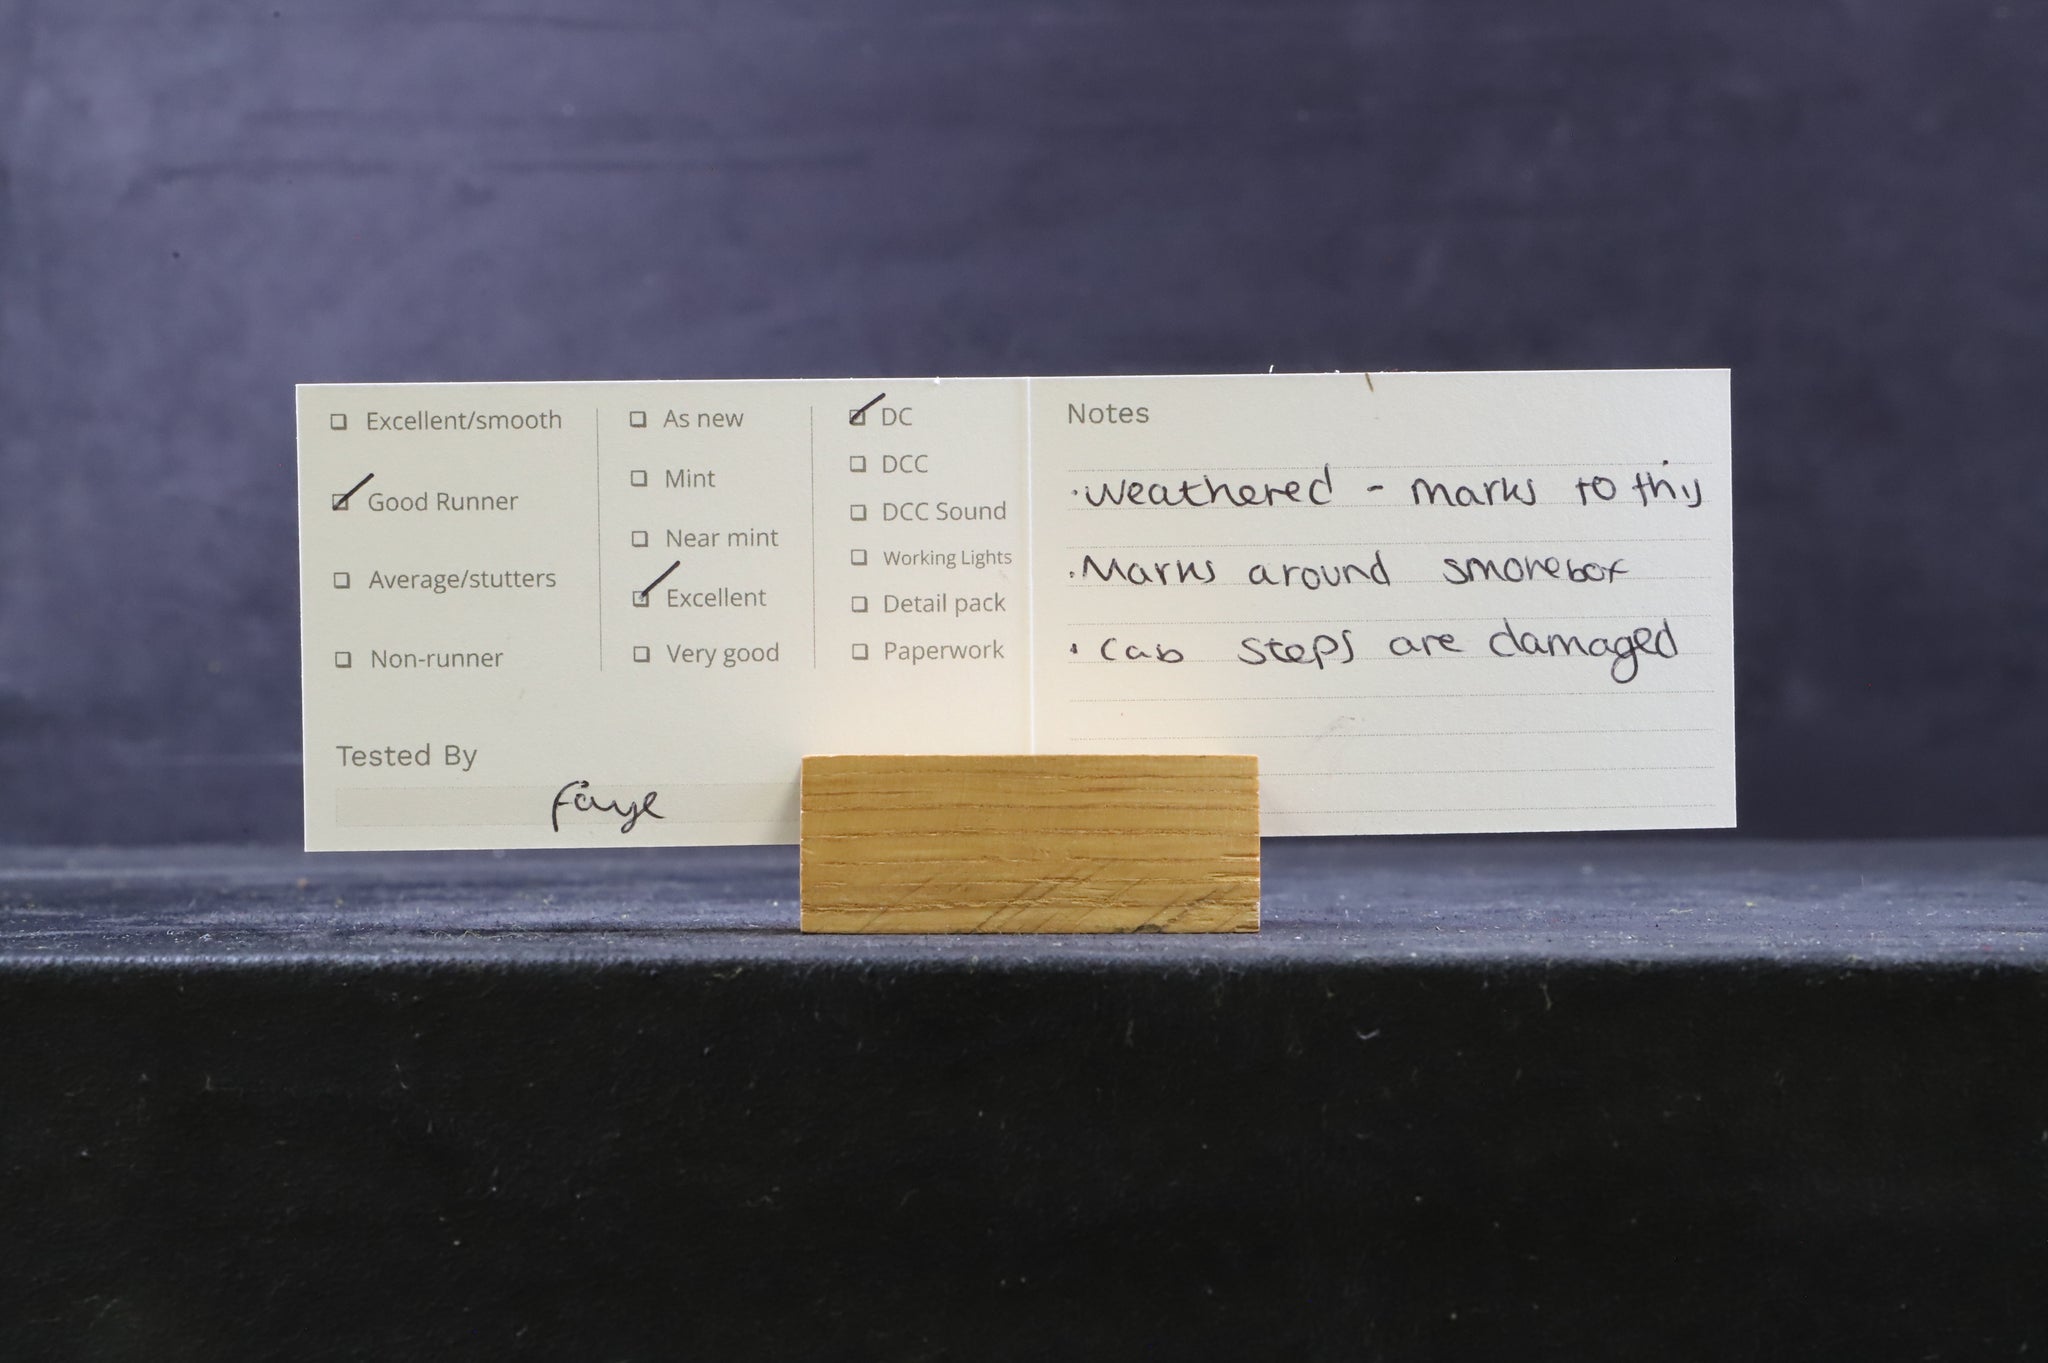 Excellent/smooth
Good Runner
Average/stutters
Non-runner
As new
Mint
Near mint
Excellent
Very good
DC
DCC
DCC Sound
Working Lights
Detail pack
Paperwork
Tested By
Faye
Notes
·Weathered - Marks to this
·Marks around smokebox
· Cab steps are damaged